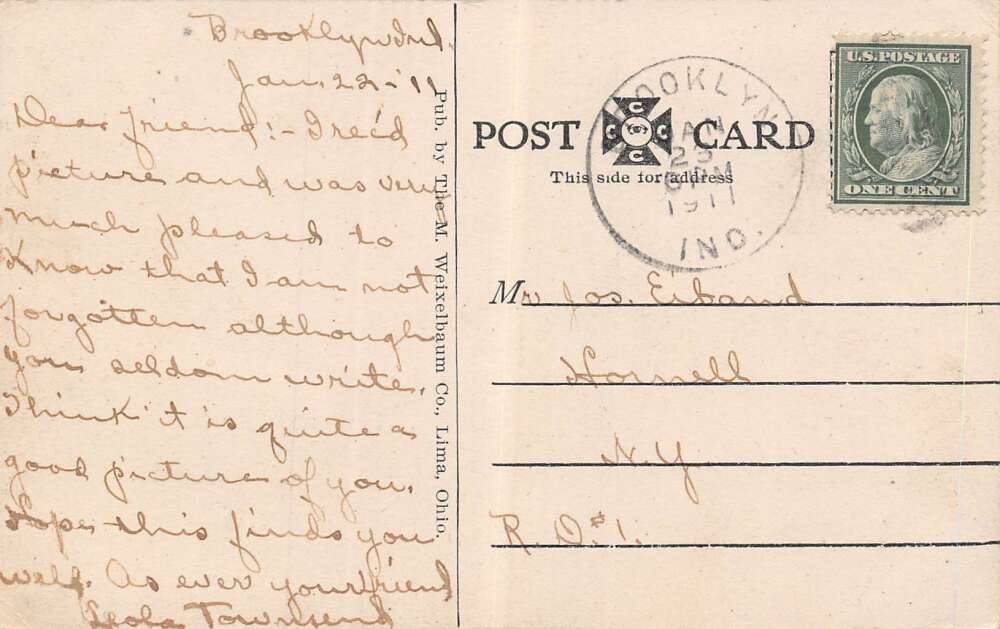 Brooklyn Ind.
Jan. 22 - '11
Dear Friend:- I rec'd
picture and was very
much pleased to
know that I am not
forgotten although
you seldom write.
Think it is quite a
good picture of you.
Hope this finds you
well. As ever your friend
Townsend
Pub. by The M. Weixelbaum Co., Lima, Ohio.
POST CARD
C C C C
This side for address
BROOKLYN
JAN
23
PM
1911
IND.
U.S. POSTAGE
ONE CENT
Mr Jos. Eiband
Hornell
N.Y.
R.D. #1.